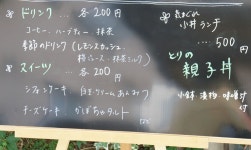 ドリンク … 各200円
コーヒー、ハーブティー、抹茶
季節のドリンク(レモンスカッシュ、
抹茶ミルク)
スイーツ … 各200円
シフォンケーキ 自家
チーズケーキ かぼちゃタルト
小丼ランチ
… 500円
とりの
親子丼
小鉢 漬物 味噌汁